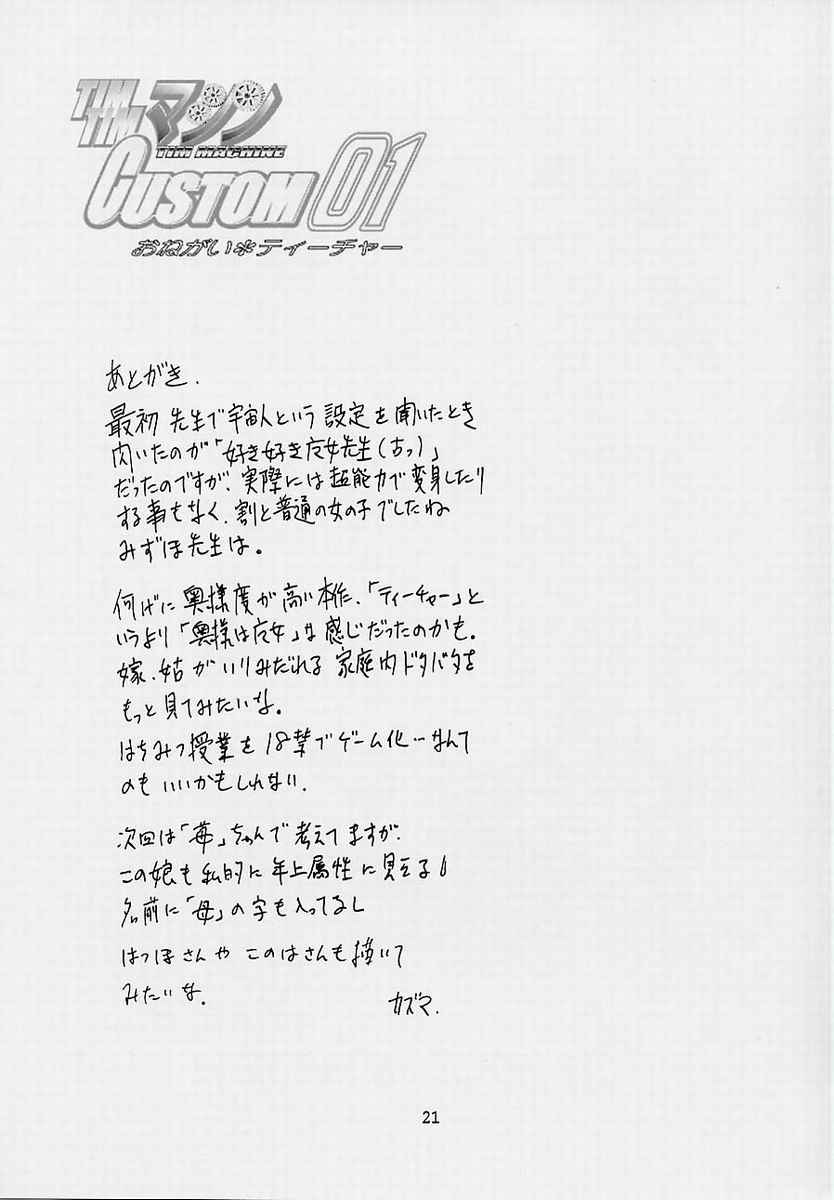 TIM
TIM マシン
TIM MACHINE
CUSTOM 01
おねがい*ティーチャー
あとがき.
最初 先生で宇宙人という 設定を聞いたとき
肉いたのが「好き好き魔女先生(古っ)」
だったのですが、実際には超能力で変身したり
する事もなく、割と普通の女の子でしたね
みずほ先生は。
何げに 奥様度が高い本作、「ティーチャー」と
いうより「奥様は魔女」な感じだったのかも。
嫁、姑がいりみだれる 家庭内ドタバタを
もっと見てみたいな。
はちみつ授業を 18禁でゲーム化…なんて
のもいいかもしれない.
次回は「苺」ちゃんで考えてますが、
この娘も私的に年上属性に見える
名前に「母」の字も入ってるし
はつほさんや このはさんも描いて
みたいな。
カズマ.
21